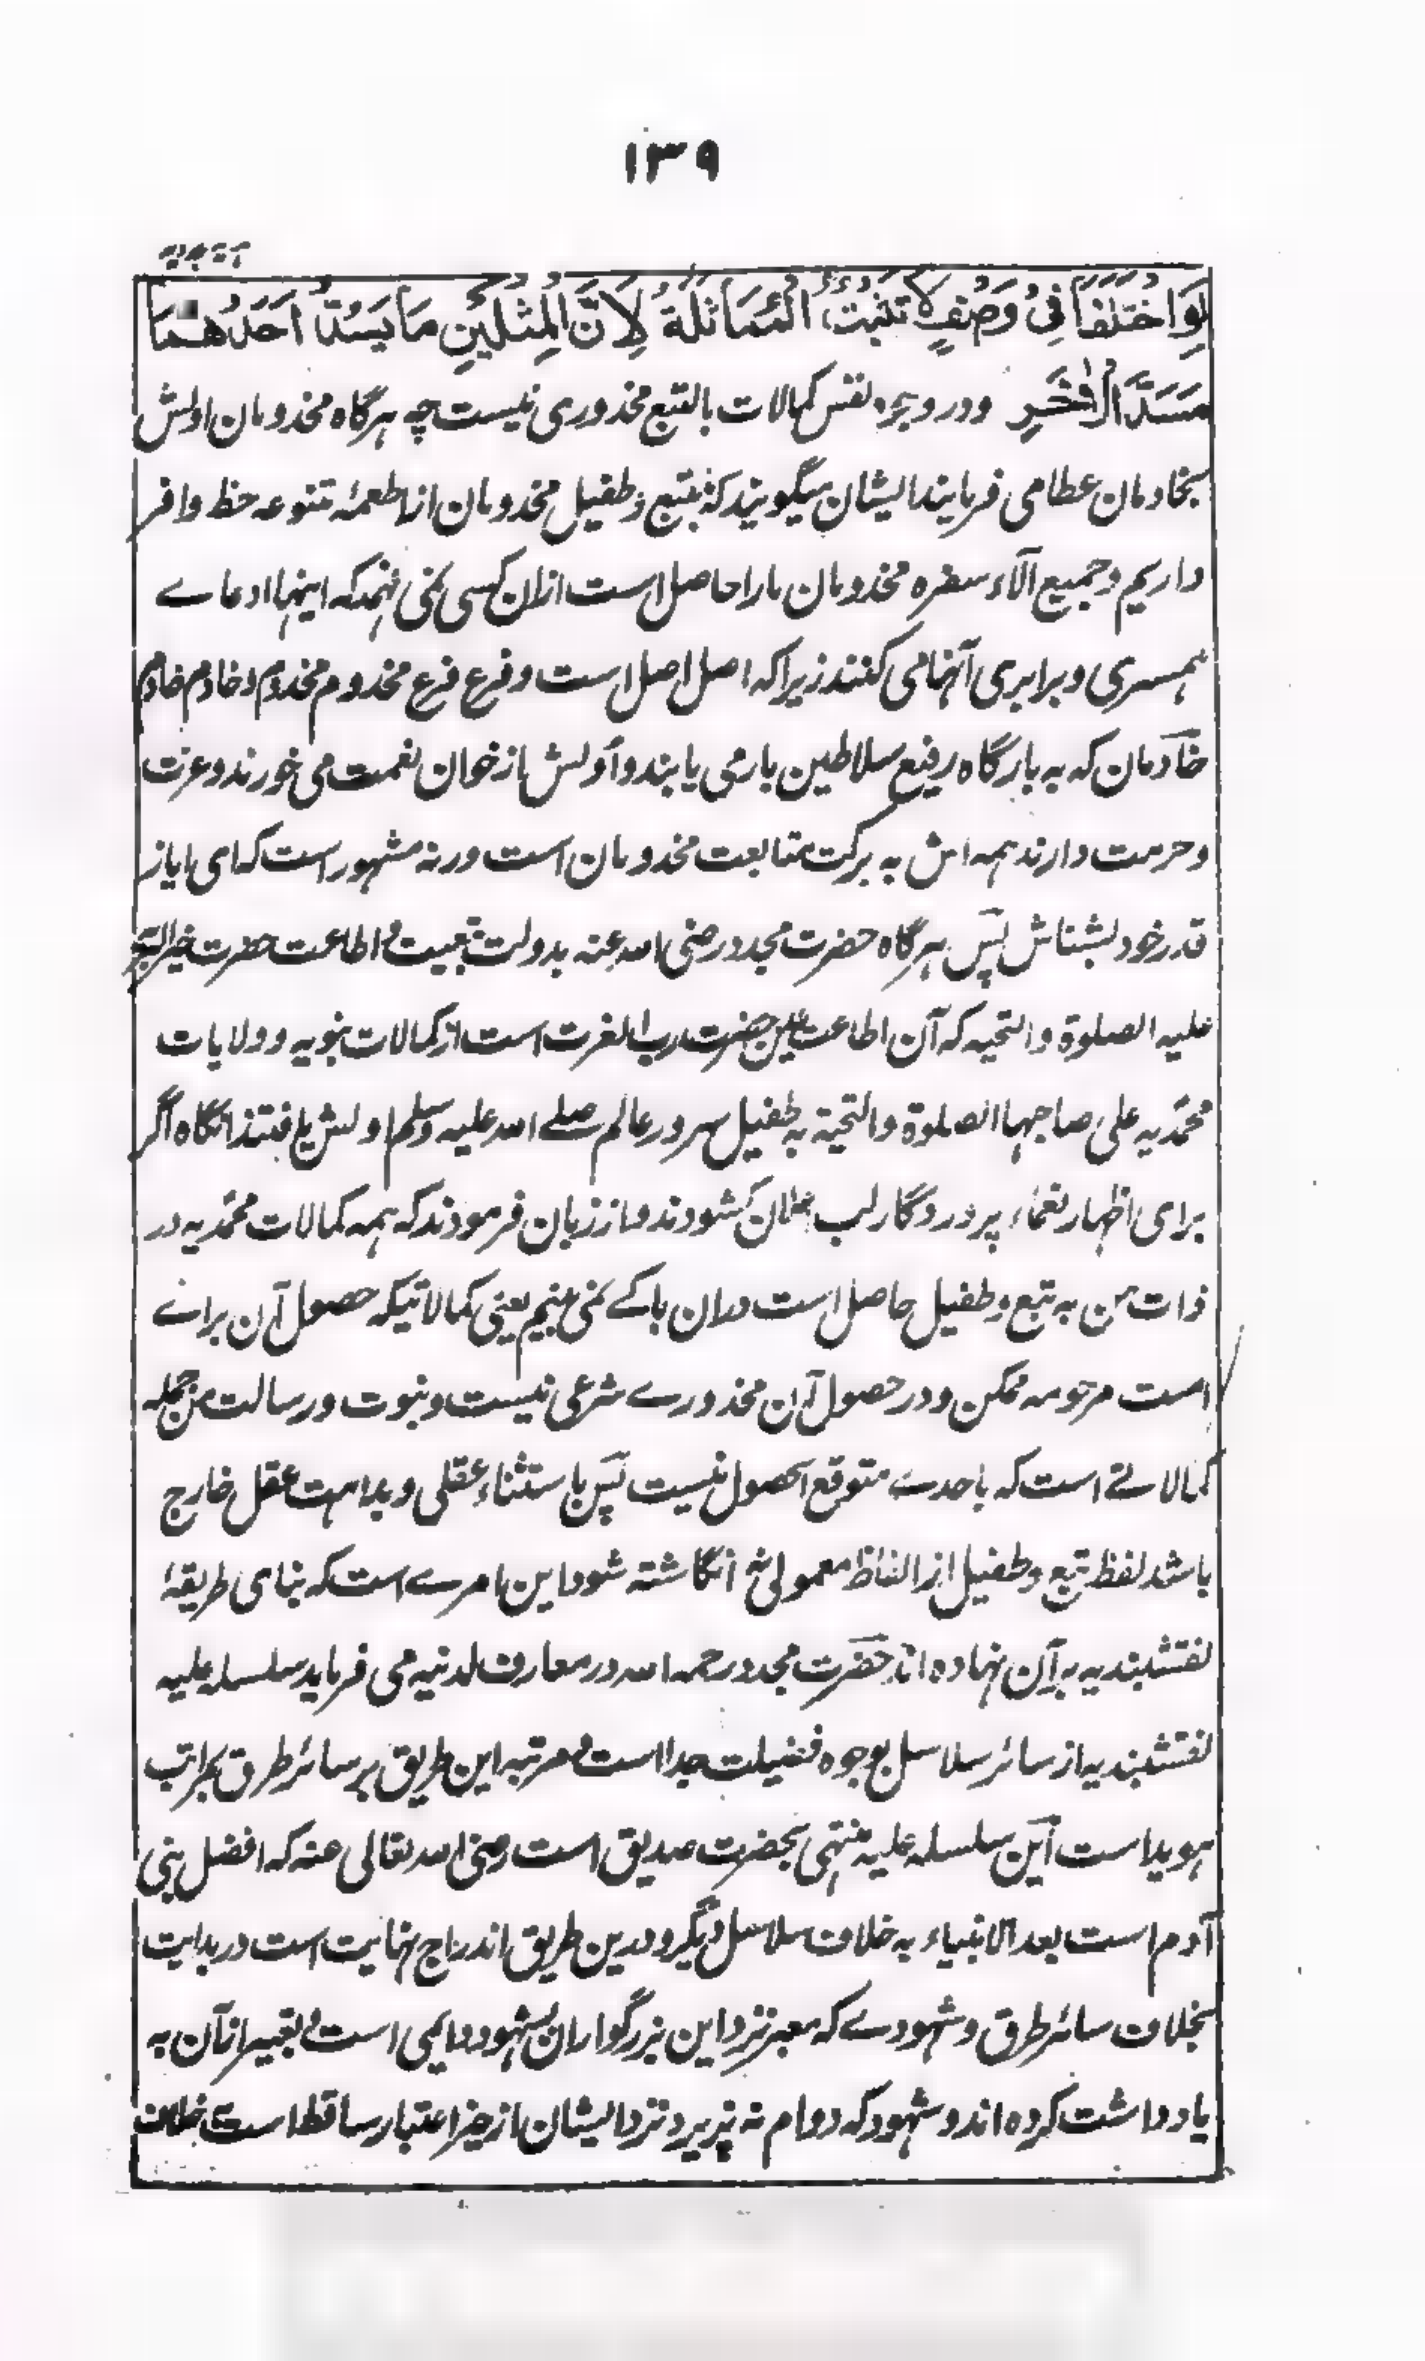 ۱۳۹
ہدیہ مجددیہ
لَوِ اخْتَلَفَا فِیْ وَصْفٍ لَا تَثْبُتُ الْمُمَاثَلَةُ لِاَنَّ الْمِثْلَیْنِ مَا یَسُدُّ اَحَدُهُمَا
مَسَدَّ الْاٰخَرِ ودر وجود نفس کمالات بالتبع محذوری نیست چه هرگاه مخدومان اولش
بخادمان عطا می فرمایند ایشان میگویند که بتبع و طفیل مخدومان از اطعمهٔ متنوعه حظ وافر
داریم و جمیع آلاء سفره مخدومان مارا حاصل است ازان کسی نمی فهمد که اینها ادعاے
همسری و برابری آنها می کنند زیرا که اصل اصل است و فرع فرع مخدوم مخدوم و خادم خادم
خادمان که به بارگاه رفیع سلاطین بار می یابند و اولش از خوان نعمت می خورند و عزت
و حرمت دارند همه اش به برکت متابعت مخدومان است ورنه مشهور است که ای ایاز
قدر خود بشناش پس هرگاه حضرت مجدد رضی الله عنه بدولت تبعیت و اطاعت حضرت خیر البشر
علیه الصلوة والتحیه که آن اطاعت عین حضرت رب العزت است از کمالات نبویه و ولایات
محمدیه علی صاحبها الصلوة والتحیة به طفیل سرور عالم صلے الله علیه وسلم اولش یافتند انگاه اگر
برای اظهار نعماء پروردگار لب کشودند و از زبان فرمودند که همه کمالات محمدیه در
ذات من به تبع و طفیل حاصل است دران باکے نمی بینیم یعنی کمالاتیکه حصول آن براے
امت مرحومه ممکن و در حصول آن محذورے شرعی نیست و نبوت و رسالت من جمله
کمالاتے است که باحدے متوقع الحصول نیست پس باستثناء عقلی و بداهت عقل خارج
باشد لفظ تبع و طفیل از الفاظ معمولی نه انگاشته شود این امرے است که بنای طریقهٔ
نقشبندیه بر آن نهاده اند حضرت مجدد رحمه الله در معارف لدنیه می فرماید سلسله علیه
نقشبندیه از سائر سلاسل بوجوه فضیلت جدا است و مرتبه این طریق بر سائر طرق بمراتب
هویدا است این سلسله علیه منتهی بحضرت صدیق است رضی الله تعالی عنه که افضل بنی
آدم است بعد الانبیاء به خلاف سلاسل دیگر و درین طریق اندراج نهایت است در بدایت
بخلاف سائر طرق و شهودے که معبر نزد این بزرگواران شهود دایمی است و تعبیر از آن به
یادداشت کرده اند و شهود که دوام نه پزیرد نزد ایشان از حیز اعتبار ساقط است خلاف